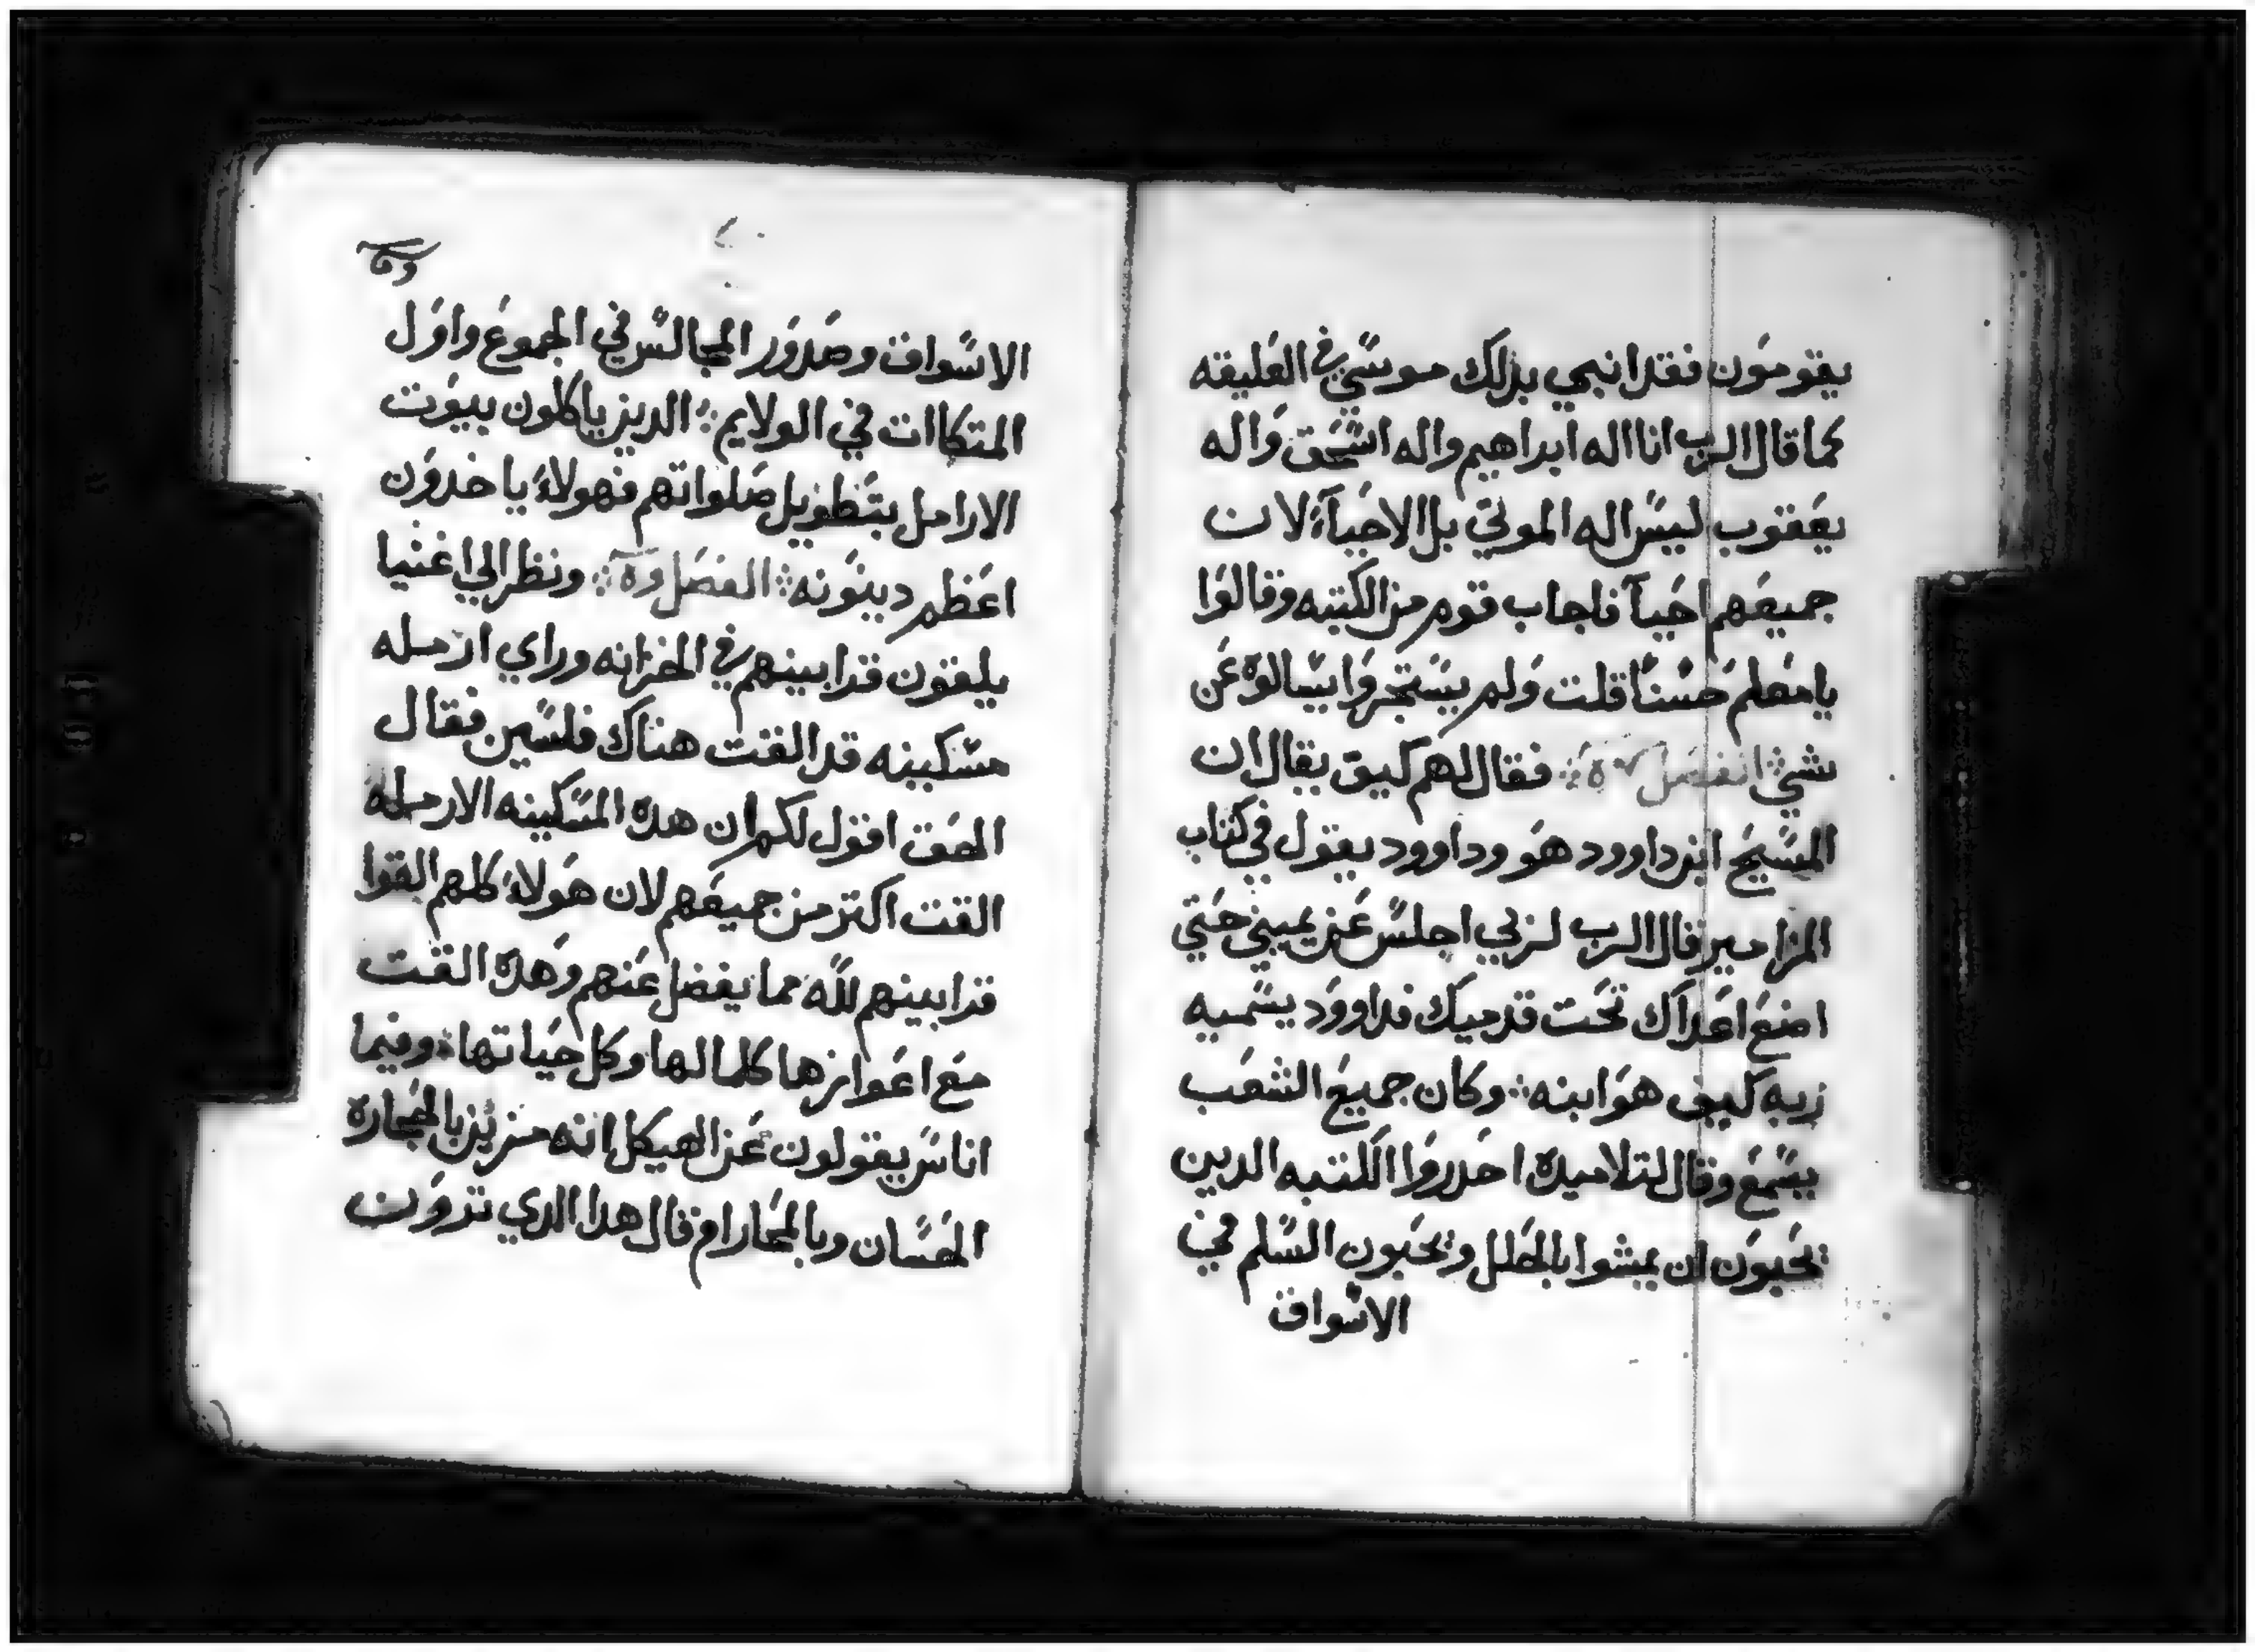 يقومون فقد انبي بدلك موسي في العليقه
كما قال الرب انا اله ابراهيم واله اسحق واله
يعقوب ليس اله الموتي بل الاحياء لان
جميعهم احيآ فاجاب قوم من الكتبه وقالوا
يا معلم حسناً قلت ولم يستجروا يسالوه عن
شي فقال لهم كيف يقال ان
المسيح ابن داوود هو وداوود يقول في كتاب
المزامير قال الرب لربي اجلس عن يميني حتي
اضع اعداك تحت قدميك فداوود يسميه
ربه كيف هو ابنه وكان جميع الشعب
يسمع وقال لتلاميده احدروا الكتبه الدين
يحبون ان يمشوا بالحلل ويحبون السلم في
الاسواق
الاسواق وصدور المجالس في الجموع واول
المتكاات في الولايم الدين ياكلون بيوت
الارامل بتطويل صلواتهم فهولاء ياخدون
اعظم دينونه الفصل ونظر الي اغنيا
يلقون قرابينهم في الخزانه وراي ارمله
مسكينه قد القت هناك فلسين فقال
الحق اقول لكم ان هده المسكينه الارمله
القت اكتر من جميعهم لان هولاء كلهم القوا
قرابينهم لله مما يفضل عنهم وهده القت
مع اعوازها كلما لها وكل حياتها وفيما
اناس يقولون عن الهيكل انه مزين بالحجاره
الحسان وبالمحارام قال هدا الدي ترون